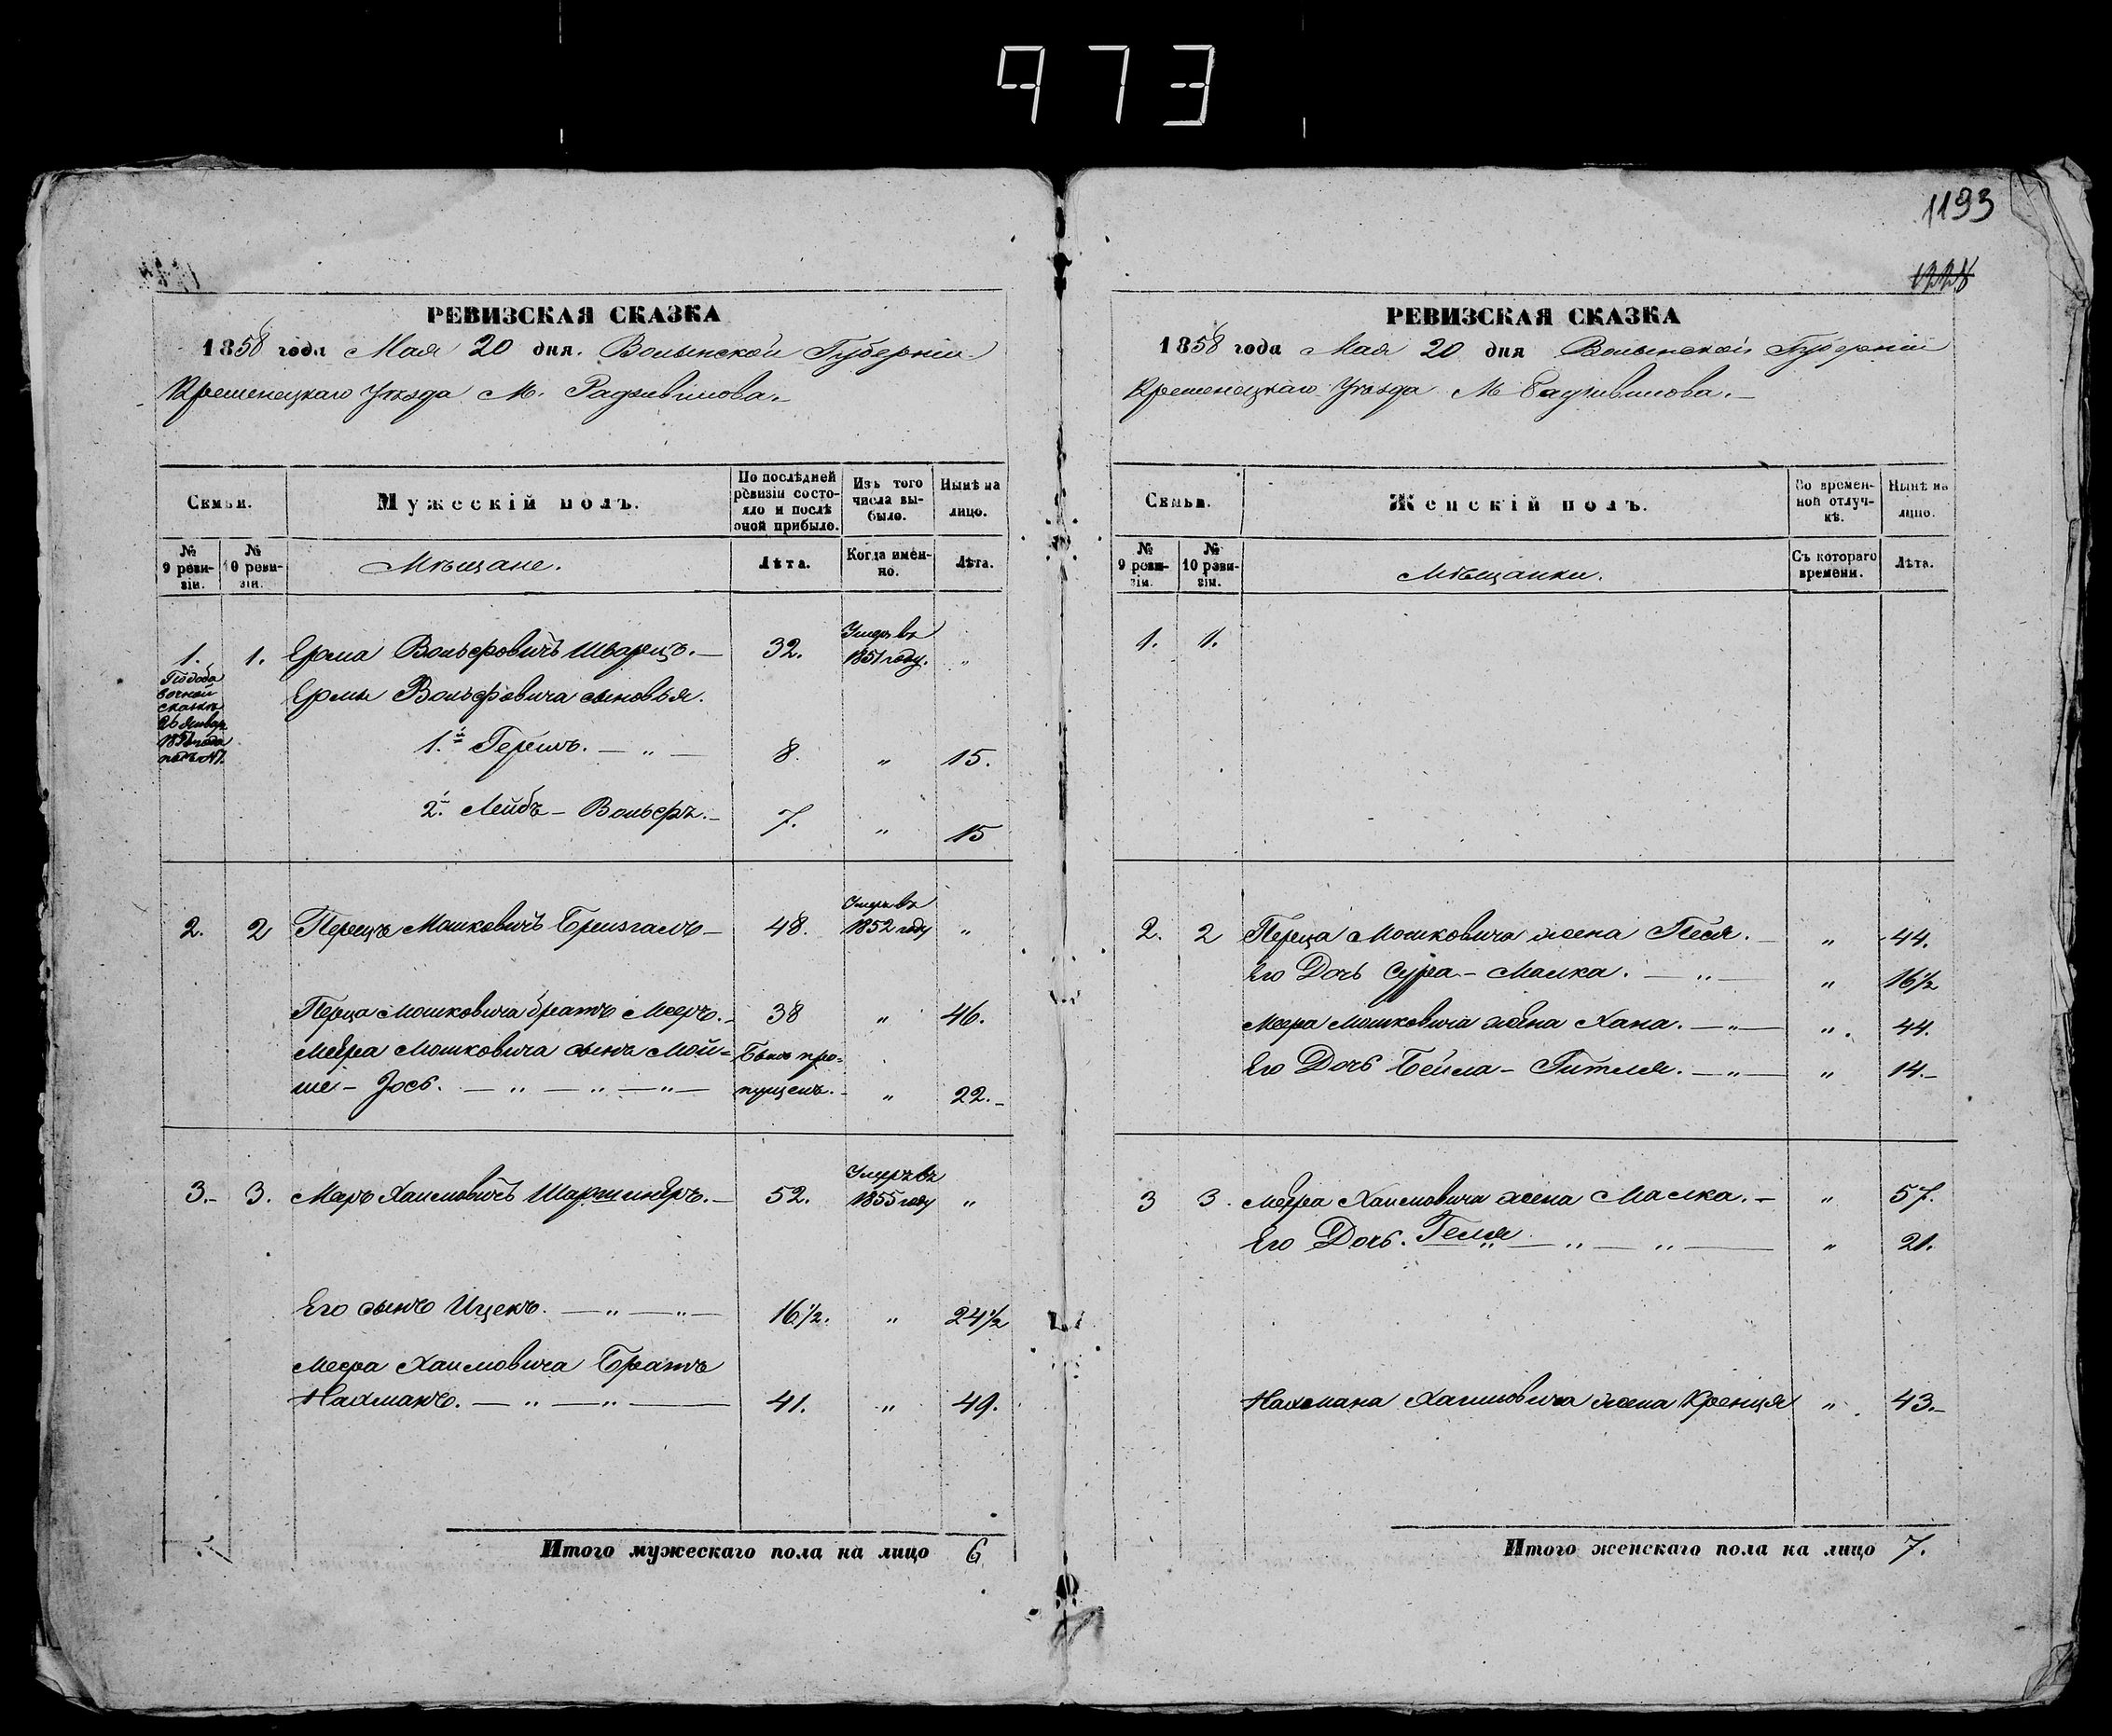 973
1193
1228
РЕВИЗСКАЯ СКАЗКА
1858 года Мая 20 дня. Волынской Губерніи
Кременецкаго Уѣзда М. Радзивилова.
Семьи.
Мужескій полъ.
По послѣдней ревизіи состояло и послѣ оной прибыло.
Изъ того числа выбыло.
Нынѣ на лицо.
№ 9 ревизіи.
№ 10 ревизіи.
Мѣщане.
Лѣта.
Когда именно.
Лѣта.
1. 1. Ерма Вольфовичъ Шварцъ. 32. Умеръ въ 1851 году. "
По добавочной сказкѣ 26 Январ. 1851 года подъ №1.
Ермы Вольфовича сыновья.
1.й Гершъ. — " — 8. " 15.
2.й Лейбъ - Вольфъ. 7. " 15
2. 2 Перецъ Мошковичъ Бризгалъ 48. Умеръ въ 1852 году "
Перца Мошковича братъ Мееръ. 38 " 46.
Меера Мошковича сынъ Мой= Былъ про=
ше - Іось. — " — " — " — пущенъ. " 22.
3. 3. Меръ Хаимовичъ 52. Умеръ въ 1855 году "
Его сынъ Ицекъ. — " — " — 16½. " 24½
Меера Хаимовича Братъ
Нахманъ. — " — " — 41. " 49.
Итого мужескаго пола на лицо 6
РЕВИЗСКАЯ СКАЗКА
1858 года Мая 20 дня Волынской Губерніи
Кременецкаго Уѣзда М Радзивилова.
Семьи.
Женскій полъ.
Во временной отлучкѣ.
Нынѣ на лицо.
№ 9 ревизіи.
№ 10 ревизіи.
Мѣщанки.
Съ котораго времени.
Лѣта.
1. 1.
2. 2 Перца Мошковича жена Песя. " 44.
Его Дочь Сура - Малка. — " — " 16½
Меера Мошковича жена Хана. — " — " 44.
Его Дочь Бейла - Гитля. — " — " 14.
3 3. Меера Хаимовича жена Малка. " 57.
Его Дочь. Геля — " — " — " 21.
Нахмана Хаимовича жена Кренця " 43.
Итого женскаго пола на лицо 7.